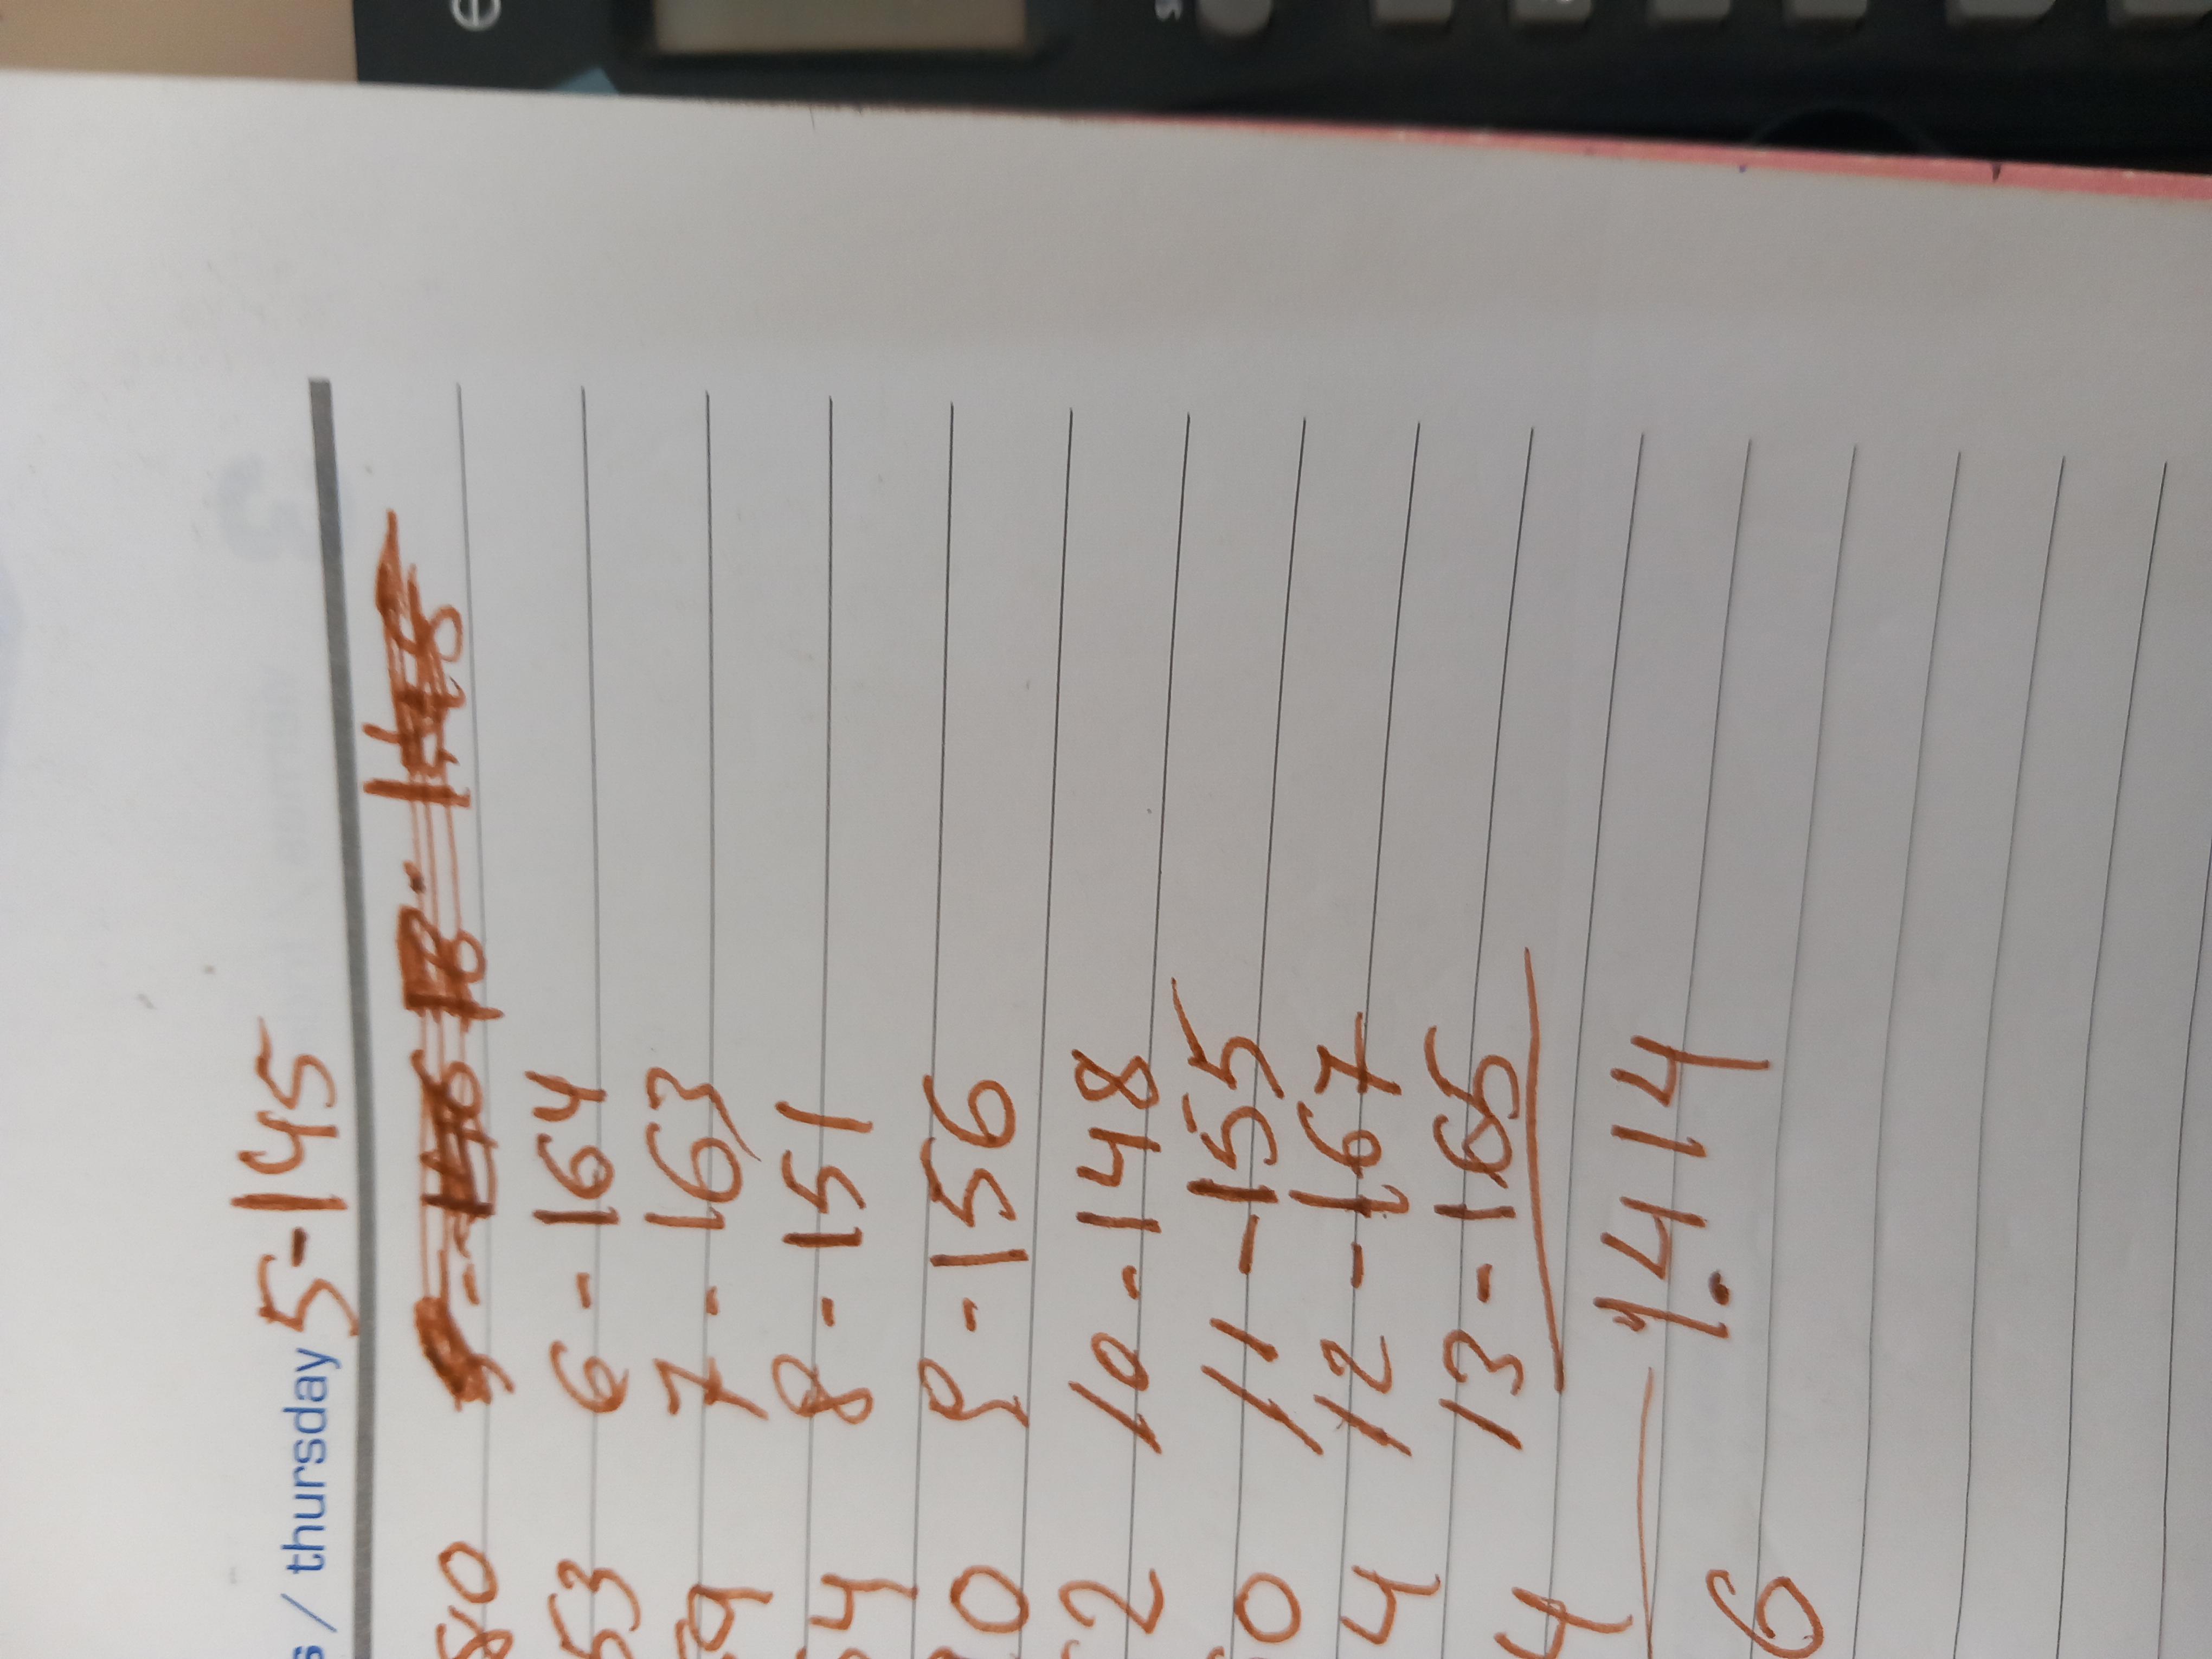 s / thursday 5-145
80
53 6 - 164
59 7 - 163
54 8 - 151
90 9 - 156
2 10 - 148
0 11 - 155
4 12 - 167
4 13 - 165
1.414
6